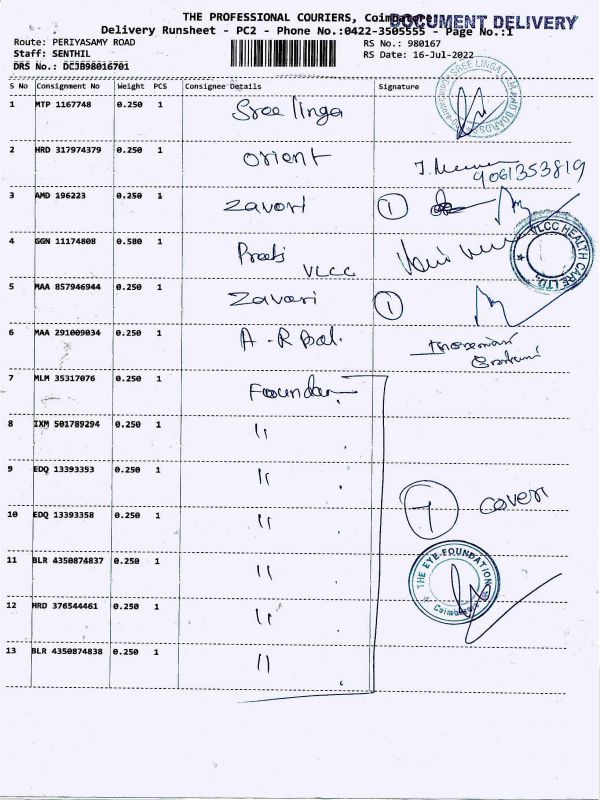 THE PROFESSIONAL COURIERS, Coimbatore
DOCUMENT DELIVERY
Delivery Runsheet - PC2 - Phone No.:0422-3505555 - Page No.:1
Route: PERIYASAMY ROAD RS No.: 980167
Staff: SENTHIL RS Date: 16-Jul-2022
DRS No.: DCJB98016701
S No Consignment No Weight PCS Consignee Details Signature
1 MTP 1167748 0.250 1 Sree linga
2 HRD 317974379 0.250 1 Orient
9061353819
3 AMD 196223 0.250 1 Zavori 1
4 GGN 11174808 0.580 1
VLCC
VLCC HEALTH CARE LTD.
5 MAA 857946944 0.250 1 Zavari 1
6 MAA 291009034 0.250 1 A - R
7 MLM 35317076 0.250 1
8 IXM 501789294 0.250 1 "
9 EDQ 13393353 0.250 1 "
7 Covers
10 EDQ 13393358 0.250 1 "
11 BLR 4350874837 0.250 1 "
THE EYE-FOUNDATION
Coimbatore
12 HRD 376544461 0.250 1 "
13 BLR 4350874838 0.250 1 "